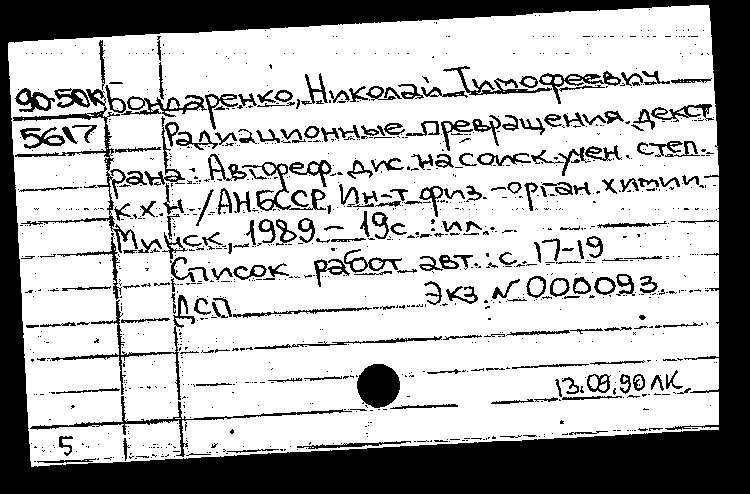 90-50К Бондаренко, Николай Тимофеевич
5617 Радиационные превращения декст
рана: Автореф. дис. на соиск. учен. степ.
к.х.н. / АНБССР, Ин-т физ.-орган. химии.-
Минск, 1989.- 19с. :ил.
Список работ авт.: с. 17-19
ДСП Экз. № 000093.
13.09.90 ЛК.
5